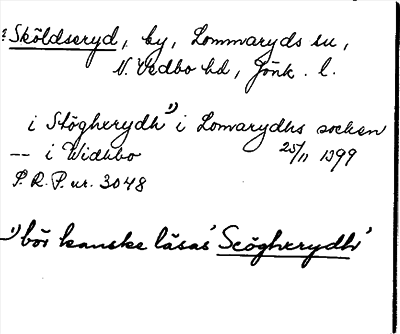 ? Sköldseryd, by, Lommaryds sn,
N. Vedbo hd, Jönk. l.
i Stögherydh 1) i Lomarydhs socken
-- i Widhbo 25/11 1399
P. R. P. nr. 3048
1) bör kanske läsas 'Scögherydh'